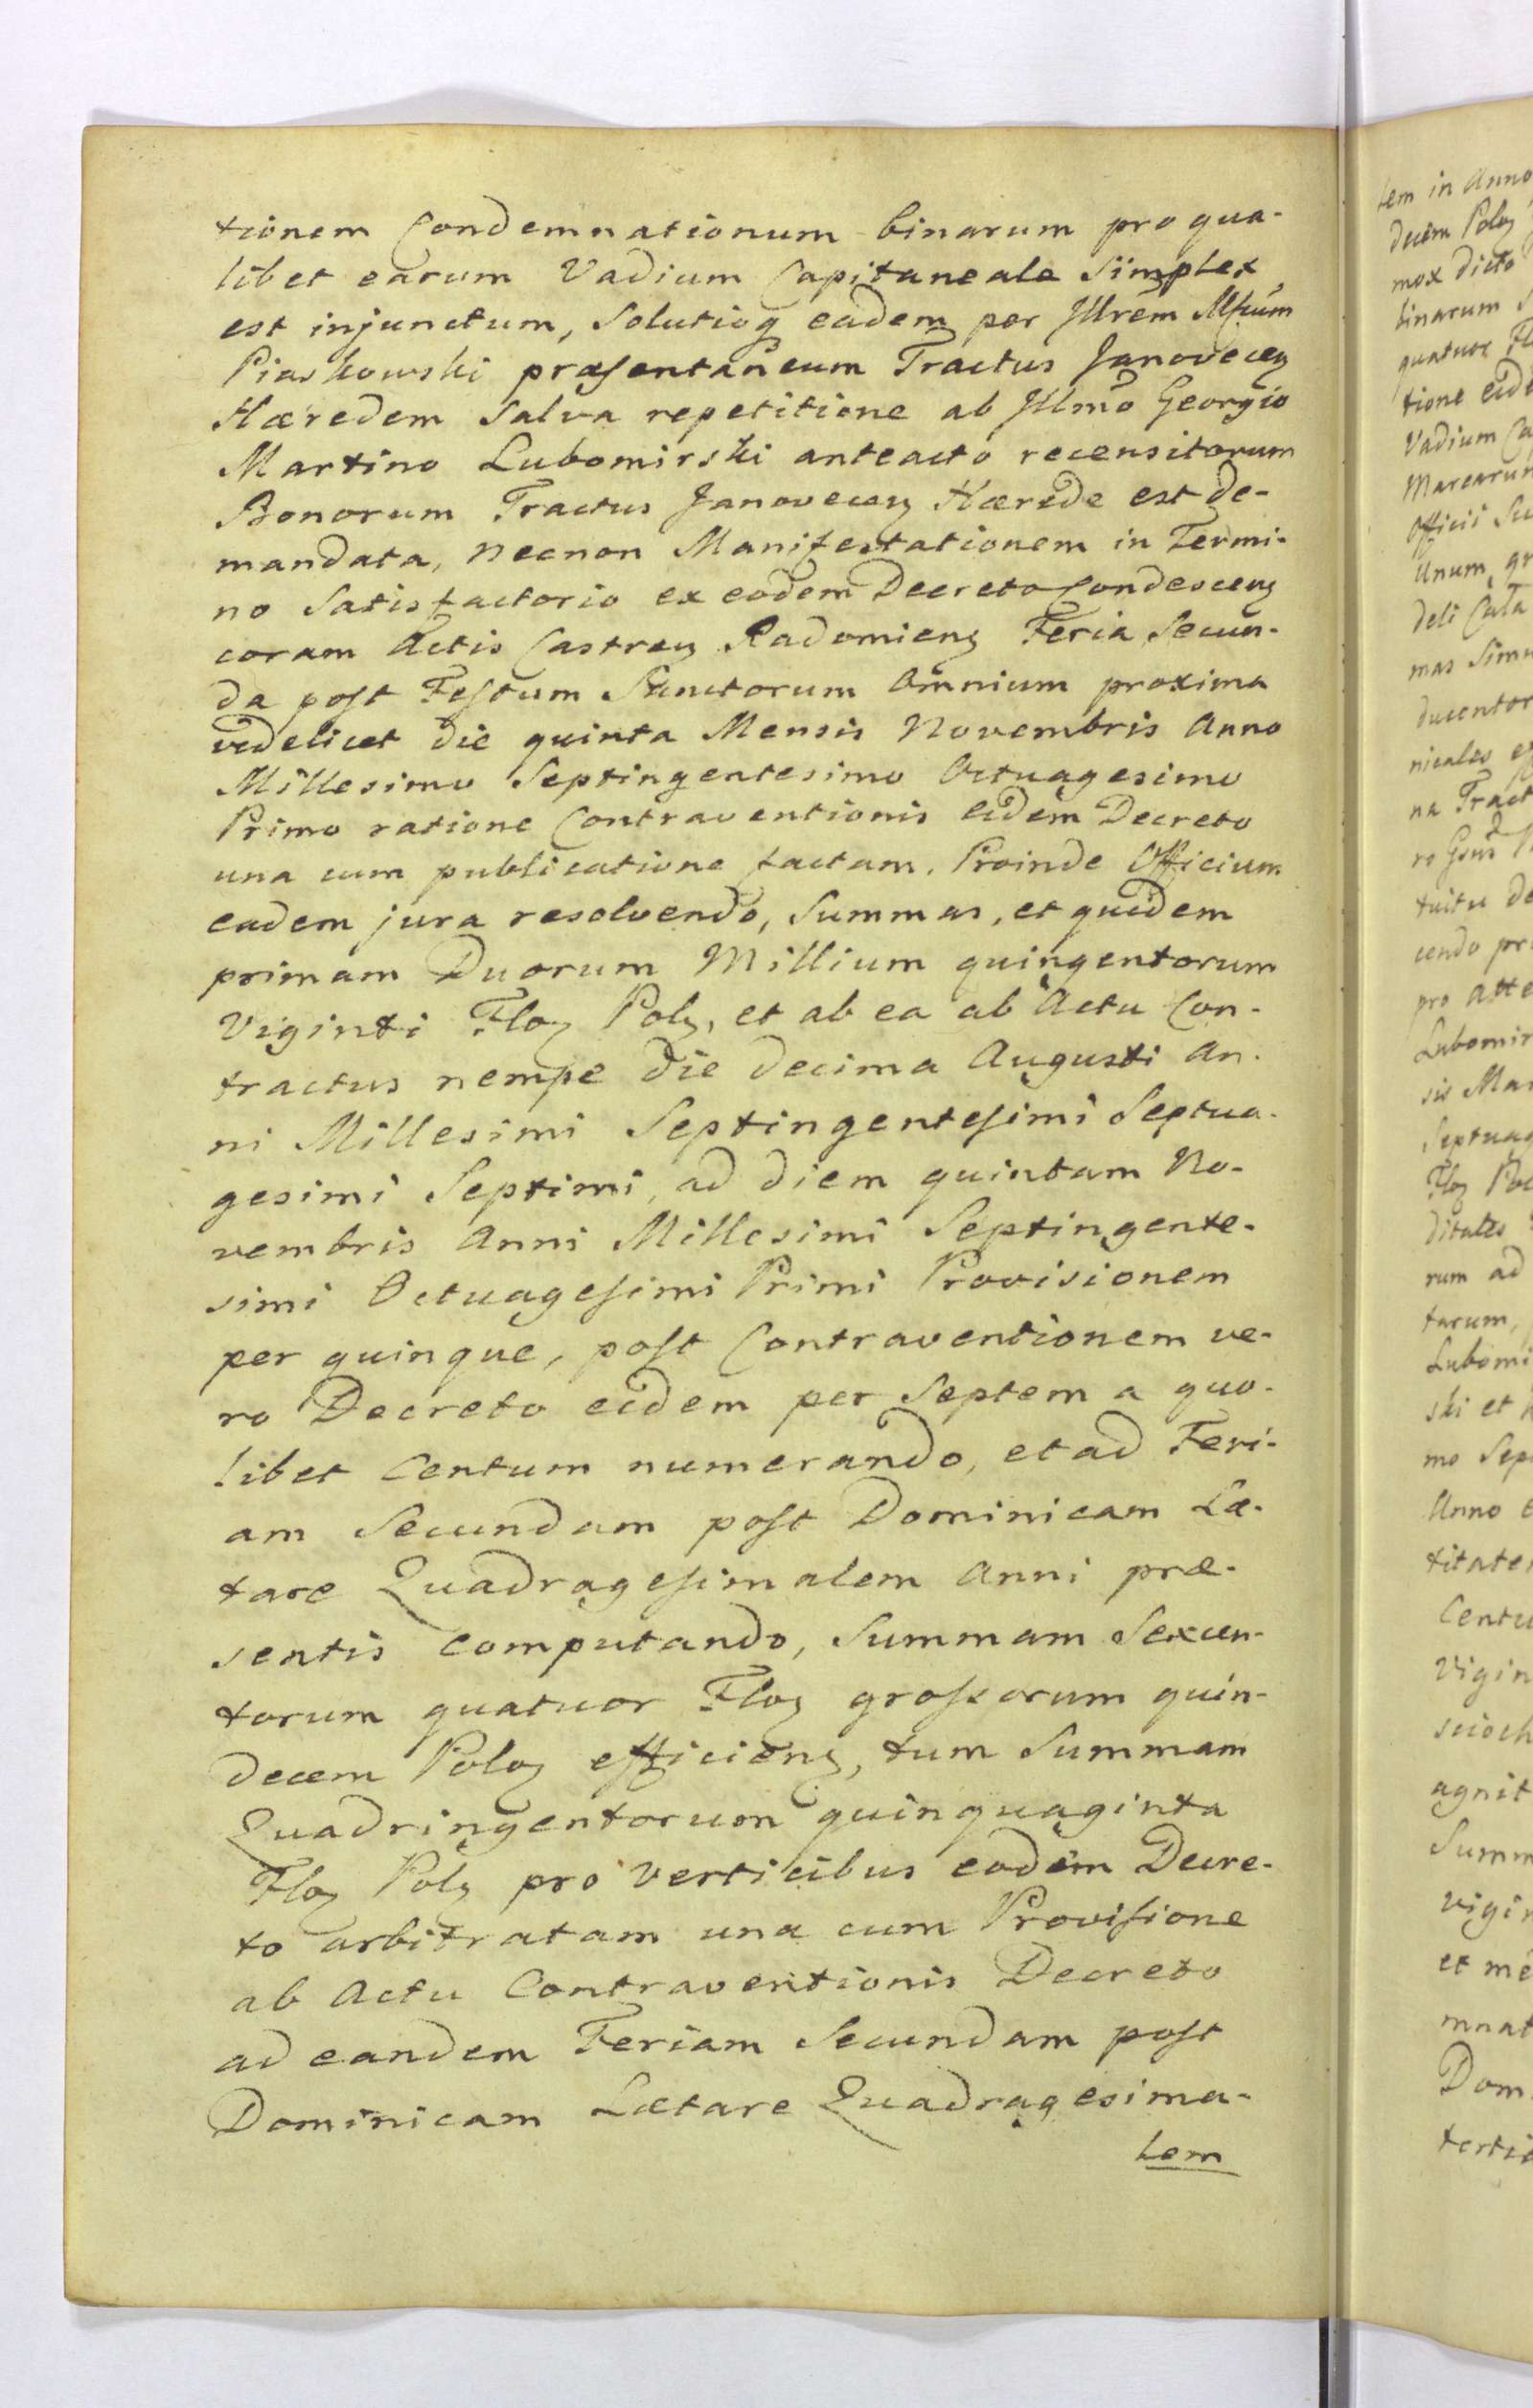 tionem Condemnationum binarum pro qua-
libet earum Vadium Capitaneale Simplex
est injunctum, Solutioq eadem per Jllrem Mſium
Piaskowski præsentaneum Tractus Janovecen
Hæredem Salva repetitione ab Jllmo Georgio
Martino Lubomirski anteacto recensitorum
Bonorum Tractus Janovecen Hærede est de-
mandata, necnon Manifestationem in Termi-
no Satisfactorio ex eodem Decreto Condescen
coram Actis Castren Radomien Feria Secun-
da post Festum Sanctorum Omnium proxima
videlicet die quinta Mensis Novembris Anno
Millesimo Septingentesimo Octuagesimo
Primo ratione Contraventionis eidem Decreto
una cum publicatione factam. Proinde Officium
eadem jura resolvendo, Summas, et quidem
primam Duorum Millium quingentorum
Viginti Flor Pol, et ab ea ab Actu Con-
tractus nempe die decima Augusti An-
ni Millesimi Septingentesimi Septua-
gesimi Septimi, ad diem quintam No-
vembris Anni Millesimi Septingente-
simi Octuagesimi Primi Provisionem
per quinque, post Contraventionem ve-
ro Decreto eidem per Septem a quo-
libet Centum numerando, et ad Feri-
am Secundam post Dominicam Læ-
tare Quadragesimalem Anni præ-
sentis computando, Summam Sexcen-
torum quatuor Flor grossorum quin-
decem Polo efficien, tum Summam
Quadringentorum quinquaginta
Flor Pol pro verticibus eodem Decre-
to arbitratam una cum Provisione
ab Actu Contraventionis Decreto
ad eandem Feriam Secundam post
Dominicam Lætare Quadragesima-
lem
lem in Anno
decem Polo
mox dicto
binarum
quatuor
tione
Vadium
Marcarum
Officii
Unum
deli
mas
nicales
na Tract
cendo
pro
Lubomir
sis Mar
Septuag
Flor
ditales
rum ad
tarum,
Lubomi
ski et
mo Sep
Anno
titate
Centu
Vigin
agnit
Summ
vigin
et me
mnat
Dom
tertia